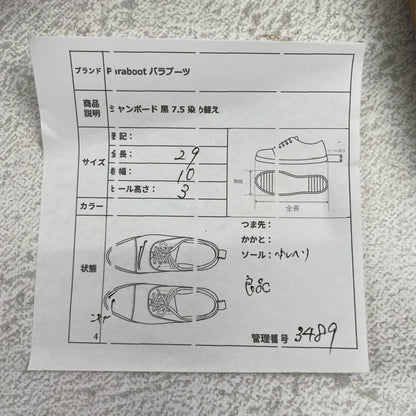 ブランド Paraboot パラブーツ
商品説明 シャンボード 黒 7.5 染め替え
サイズ
表記：
全長： 29
横幅： 10
ヒール高さ： 3
全長
カラー
状態
つま先：
かかと：
ソール：
4
管理番号 3489